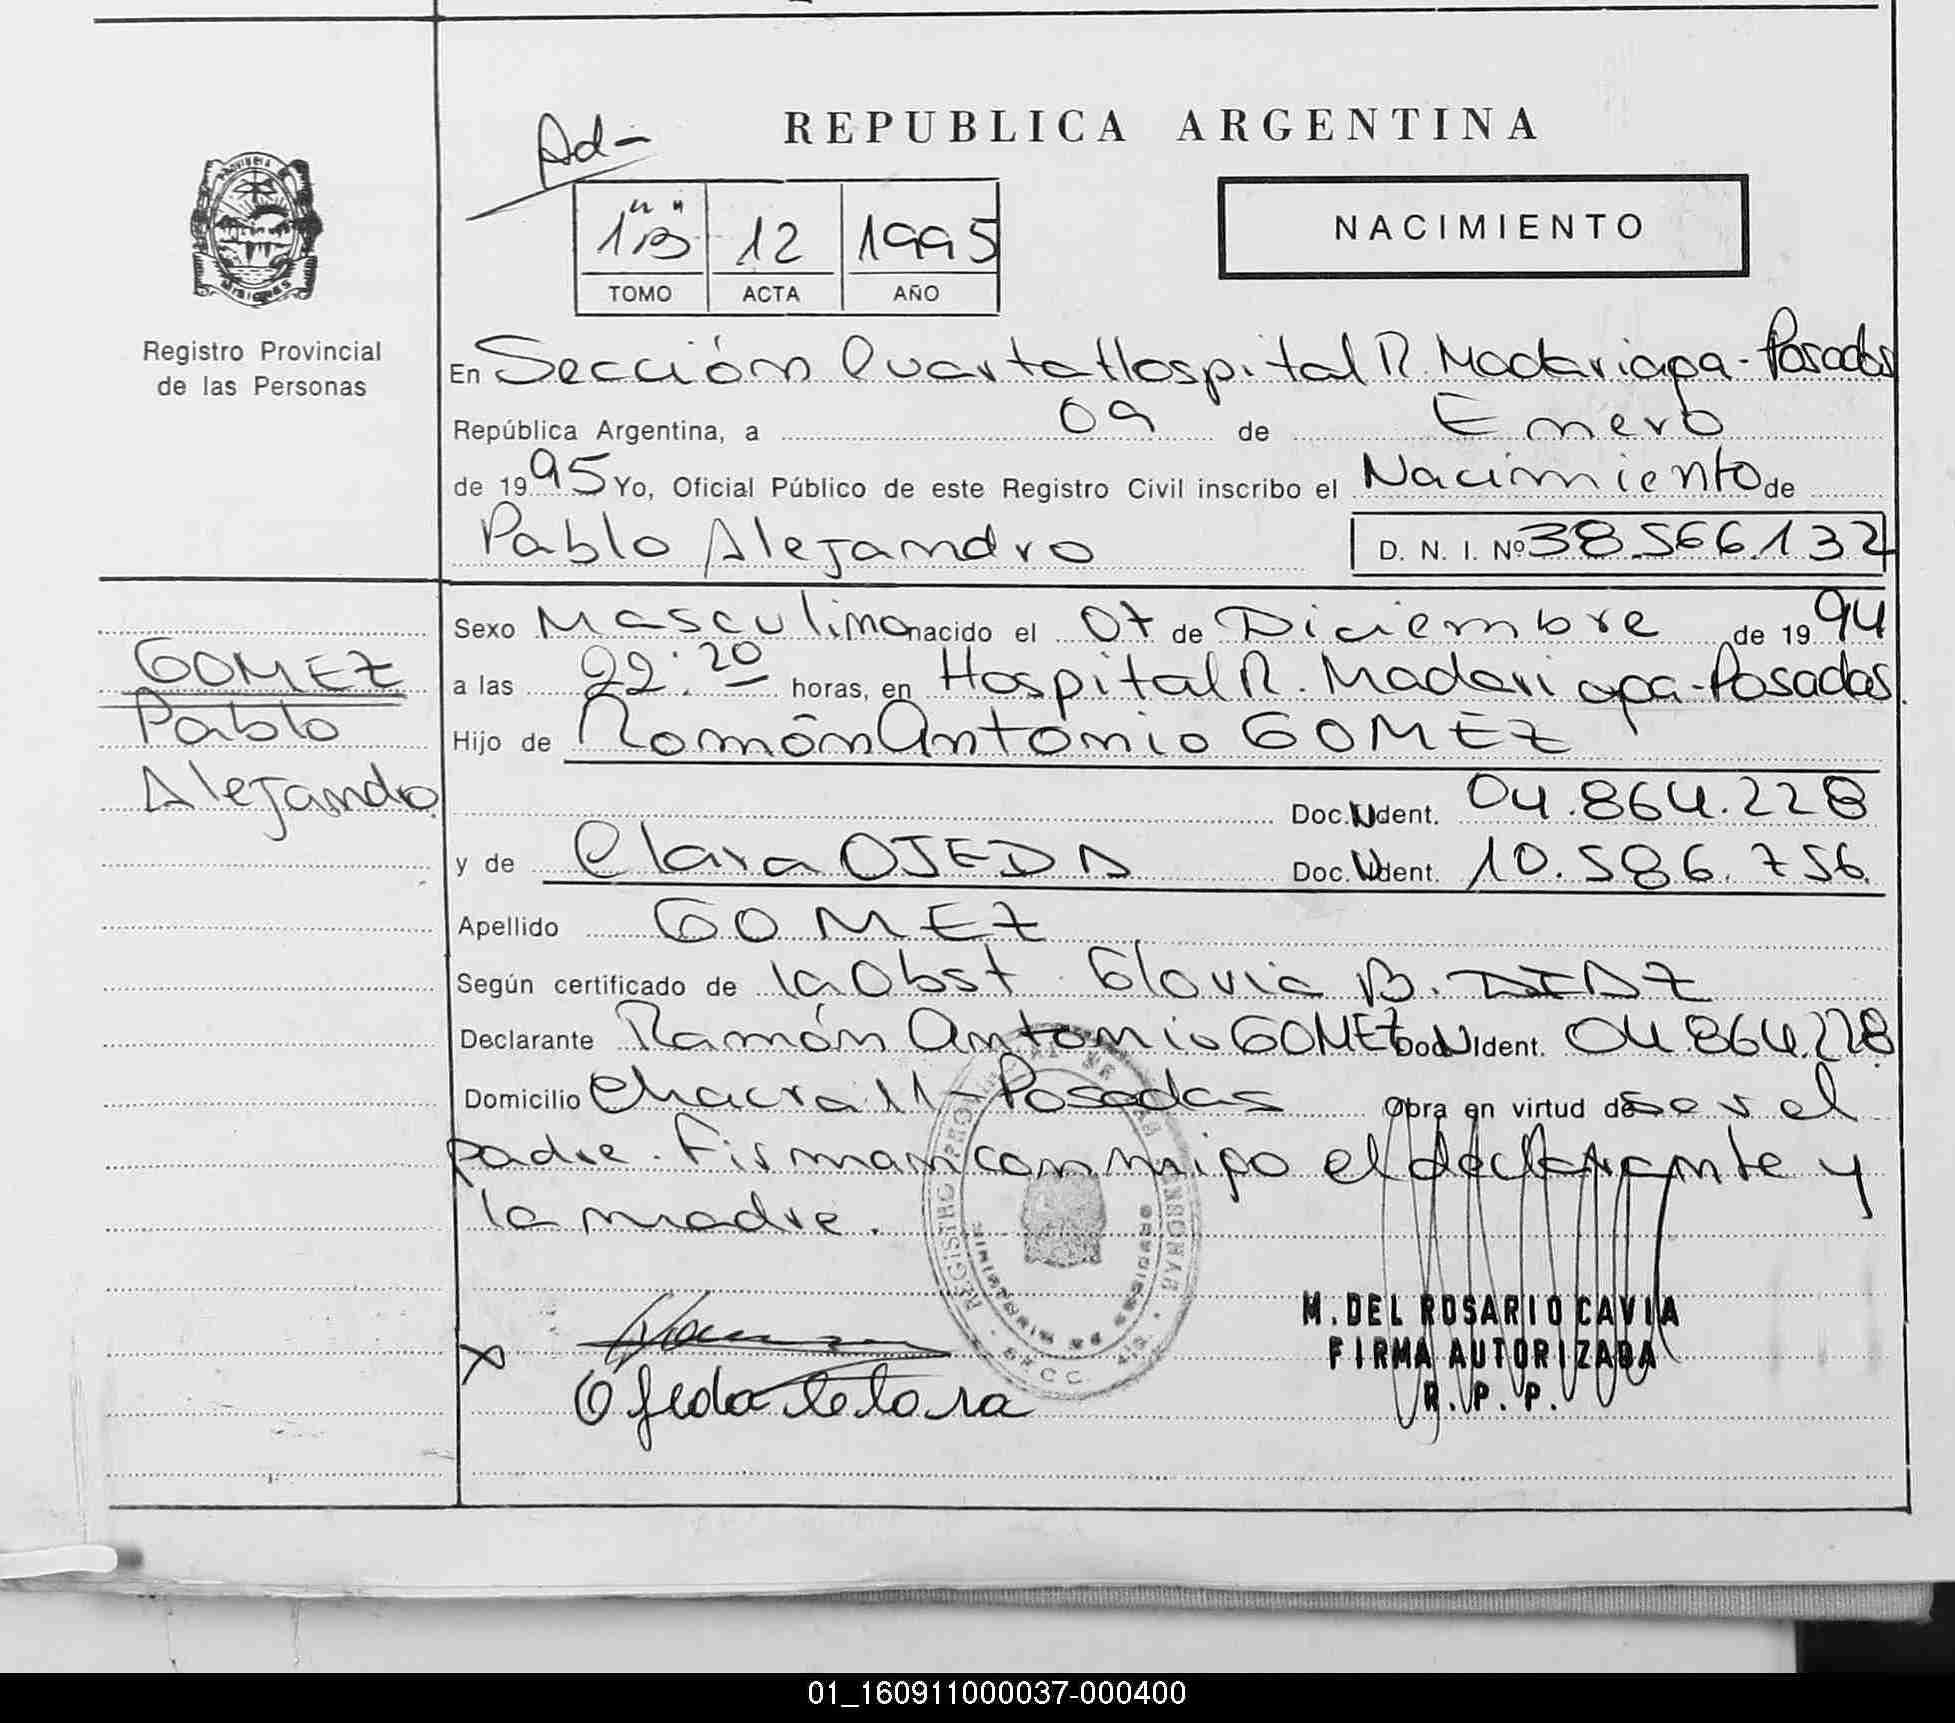 REPUBLICA ARGENTINA
Ad-
1"B" 12 1995
TOMO ACTA AÑO
NACIMIENTO
PROVINCIA
MISIONES
Registro Provincial
de las Personas
En Sección Cuarta Hospital R. Madariaga - Posadas
República Argentina, a 09 de Enero
de 1995 Yo, Oficial Público de este Registro Civil inscribo el Nacimiento de
Pablo Alejandro D. N. I. Nº 38.566.132
GOMEZ
Pablo
Alejandro.
Sexo Masculino nacido el 07 de Diciembre de 1994
a las 22:20 horas, en Hospital R. Madariaga - Posadas.
Hijo de Román Antonio GOMEZ
Doc. Ident. 04.864.228
y de Clara OJEDA Doc. Ident. 10.586.756.
Apellido GOMEZ
Según certificado de la Obst. Gloria B. DIAZ
Declarante Ramón Antonio GOMEZ Doc. Ident. 04.864.228
Domicilio Chacra 11 - Posadas Obra en virtud de ser el
padre. Firman conmigo el declarante y
la madre.
REGISTRO PROVINCIAL DE LAS PERSONAS
MINISTERIO DE GOBIERNO
X
Ojeda Clara
M. DEL ROSARIO CAVIA
FIRMA AUTORIZADA
R. P. P.
01_160911000037-000400